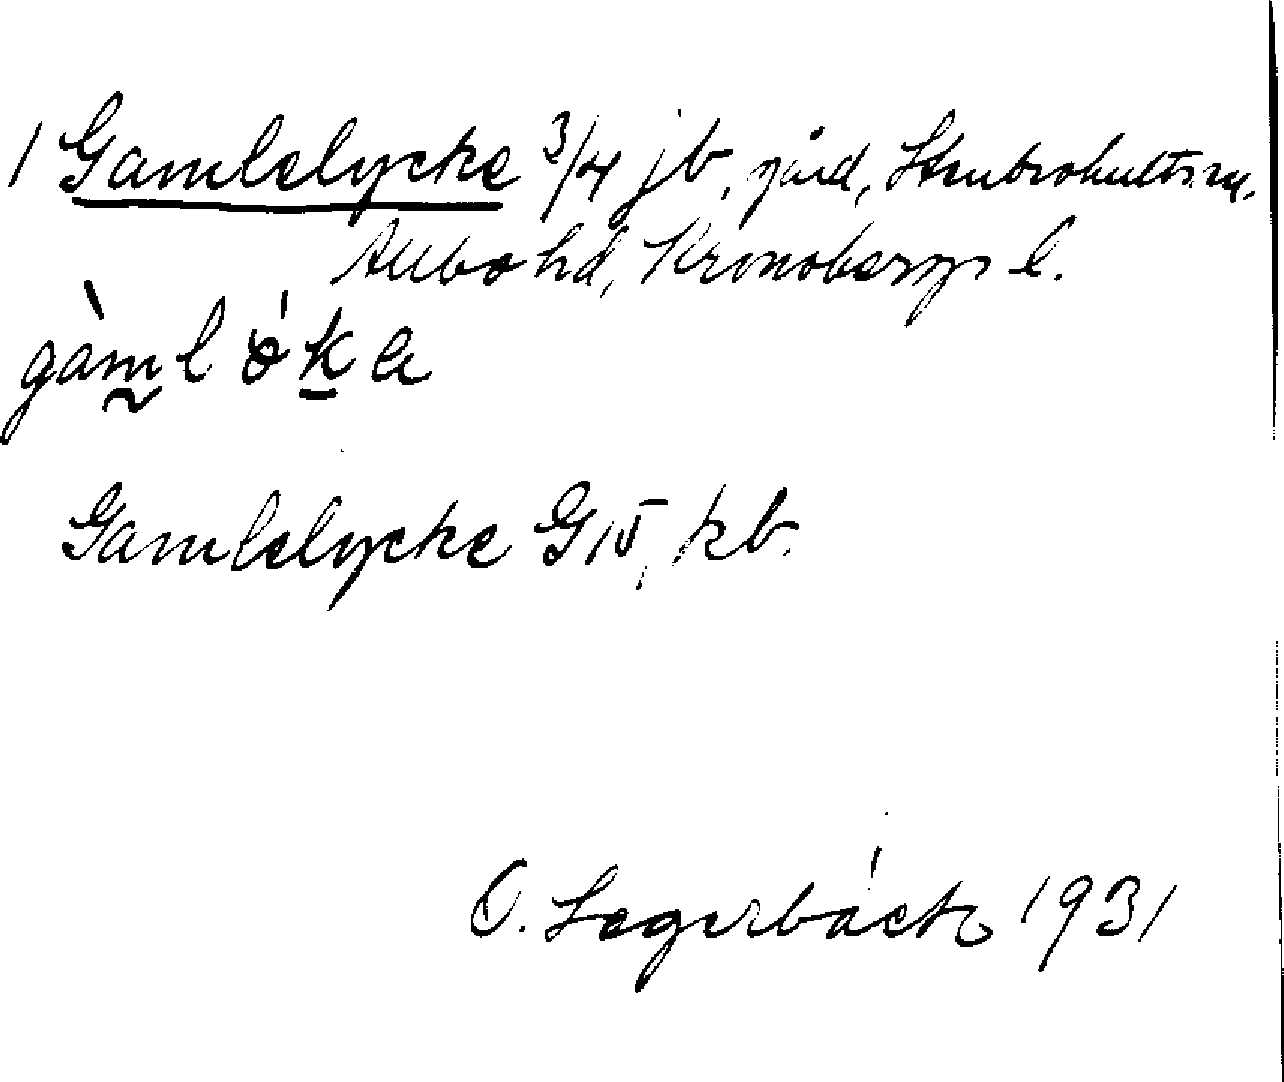 1 Gamlelycke 3/4 jb, gård, Stenbrohults sn.
Allbo hd, Kronobergs l.
gàml ö́ka
Gamlelycke G 15, kb.
O. Segerbäck 1931